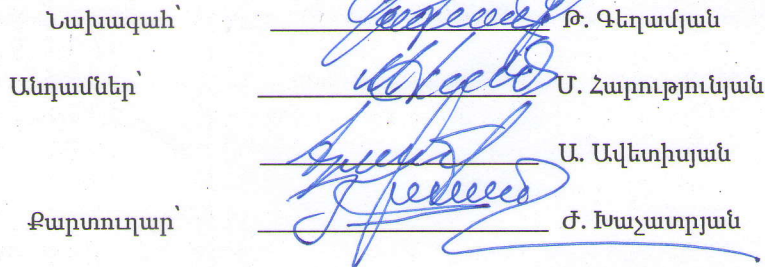 Նախագահ՝ Թ. Գեղամյան
Անդամներ՝ Մ. Հարությունյան
Ա. Ավետիսյան
Քարտուղար՝ Ժ. Խաչատրյան